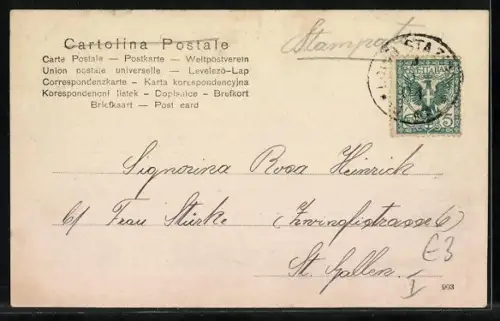 Cartolina Postale
Stampate
Carte Postale — Postkarte — Weltpostverein
Union postale universelle — Levelező-Lap
Correspondenzkarte — Karta korespondencyjna
Korespondenční lístek — Dopisnice — Brefkort
Briefkaart — Post card
5
Signorina Rosa Heinrich
c/ Frau Stürke (Zwinglistrasse 6)
St. Gallen.
E3
I
903